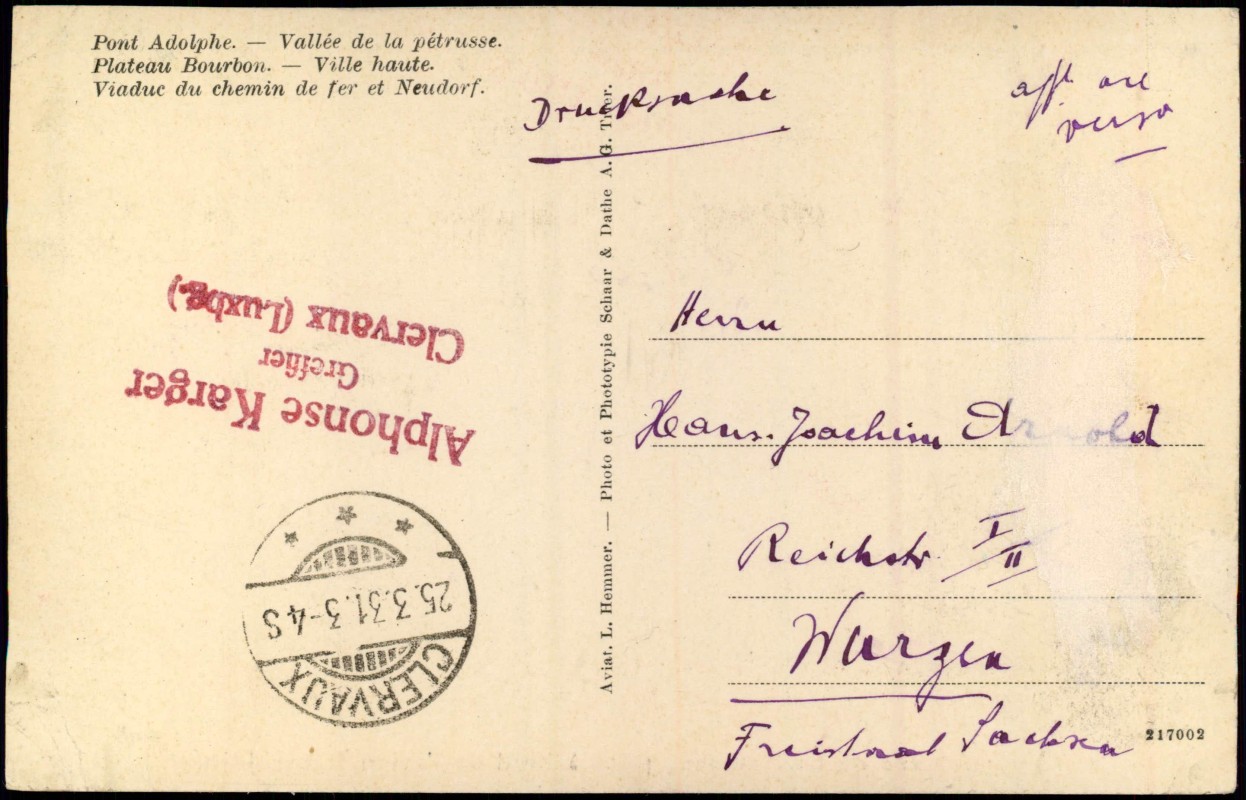 Pont Adolphe. — Vallée de la pétrusse.
Plateau Bourbon. — Ville haute.
Viaduc du chemin de fer et Neudorf.
Drucksache
verso
Aviat. L. Hemmer. — Photo et Phototypie Schaar & Dathe A. G. Trier.
Alphonse Karger
Greffier
Clervaux (Luxbg.)
25.3.31.3-4S
CLERVAUX
Herrn
Hans-Joachim Arnold
Reichstr I/II
Wurzen
Freistaat Sachsen
217002